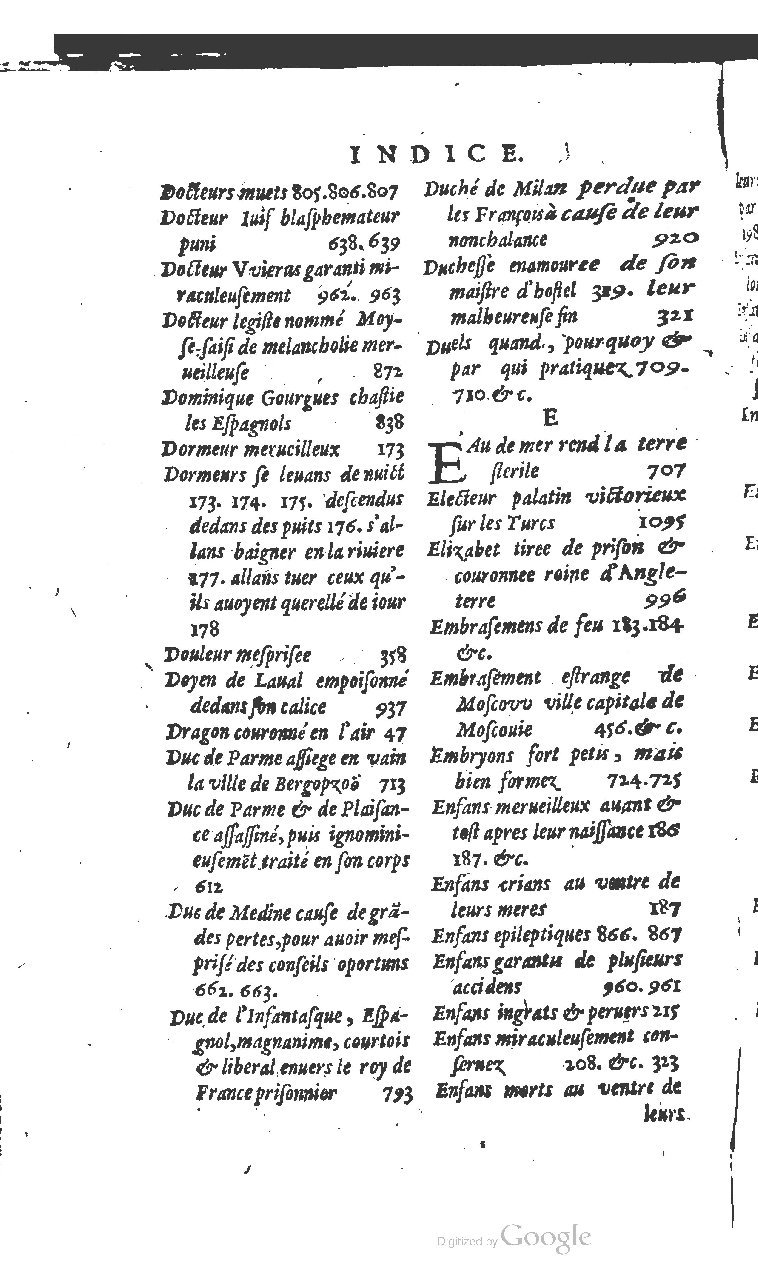 INDICE.
Docteurs muets 805.806.807
Docteur Iuif blasphemateur
puni 638.639
Docteur Vvierus garanti mi-
raculeusement 962. 963
Docteur legiste nommé Moy-
se, saisi de melancholie mer-
ueilleuse 872
Dominique Gourgues chastie
les Espagnols 838
Dormeur merueilleux 173
Dormeurs se leuans de nuict
173. 174. 175. descendus
dedans des puits 176. s'al-
lans baigner en la riuiere
177. allans tuer ceux qu'-
ils auoyent querellé de iour
178
Douleur mesprisee 358
Doyen de Laual empoisonné
dedans son calice 937
Dragon couronné en l'air 47
Duc de Parme assiege en vain
la ville de Bergopzoõ 713
Duc de Parme & de Plaisan-
ce assassiné, puis ignomini-
eusemēt traité en son corps
612
Duc de Medine cause de grā-
des pertes, pour auoir mes-
prisé des conseils oportuns
662. 663.
Duc de l'Infantasque, Espa-
gnol, magnanime, courtois
& liberal enuers le roy de
France prisonnier 793
Duché de Milan perdue par
les François à cause de leur
nonchalance 920
Duchesse enamouree de son
maistre d'hostel 319. leur
malheureuse fin 321
Duels quand, pourquoy &
par qui pratiquez 709.
710. &c.
E
EAu de mer rend la terre
sterile 707
Electeur palatin victorieux
sur les Turcs 1095
Elizabet tiree de prison &
couronnee roine d'Angle-
terre 996
Embrasemens de feu 183.184
&c.
Embrasement estrange de
Moscovv ville capitale de
Moscouie 456. & c.
Embryons fort petis, mais
bien formez 724.725
Enfans merueilleux auant &
tost apres leur naissance 186
187. &c.
Enfans crians au ventre de
leurs meres 187
Enfans epileptiques 866. 867
Enfans garantis de plusieurs
accidens 960. 961
Enfans ingrats & peruers 215
Enfans miraculeusement con-
seruez 208. &c. 323
Enfans morts au ventre de
leurs.
Digitized by Google